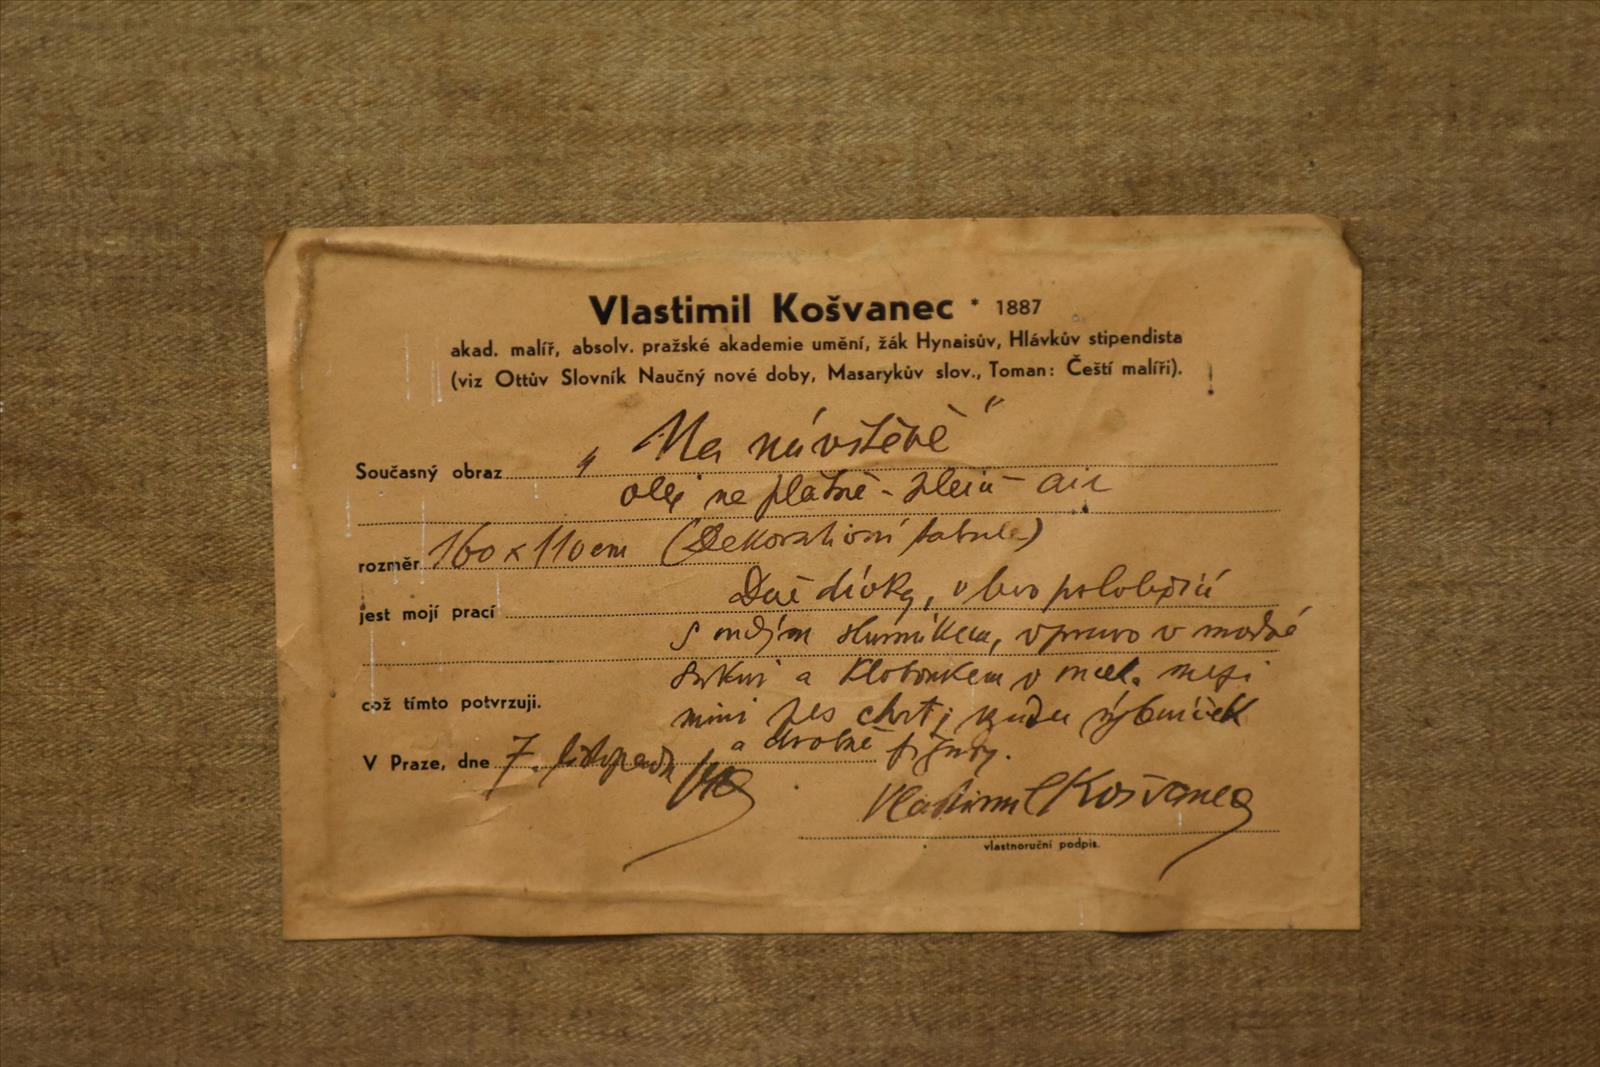 Vlastimil Košvanec * 1887
akad. malíř, absolv. pražské akademie umění, žák Hynaisův, Hlávkův stipendista
(viz Ottův Slovník Naučný nové doby, Masarykův slov., Toman: Čeští malíři).
Současný obraz „Na návštěvě“
olej na plátně -
rozměr 160 x 110 cm (Dekorativní tabule)
jest mojí prací Dvě dívky, vlevo
slunníkem, vpravo v modré
sukni a kloboukem v mezi
což tímto potvrzuji. nimi pes chrt; vzadu rybníček
a drobné figury.
V Praze, dne 7. listopadu
Vlastimil Košvanec
vlastnoruční podpis.